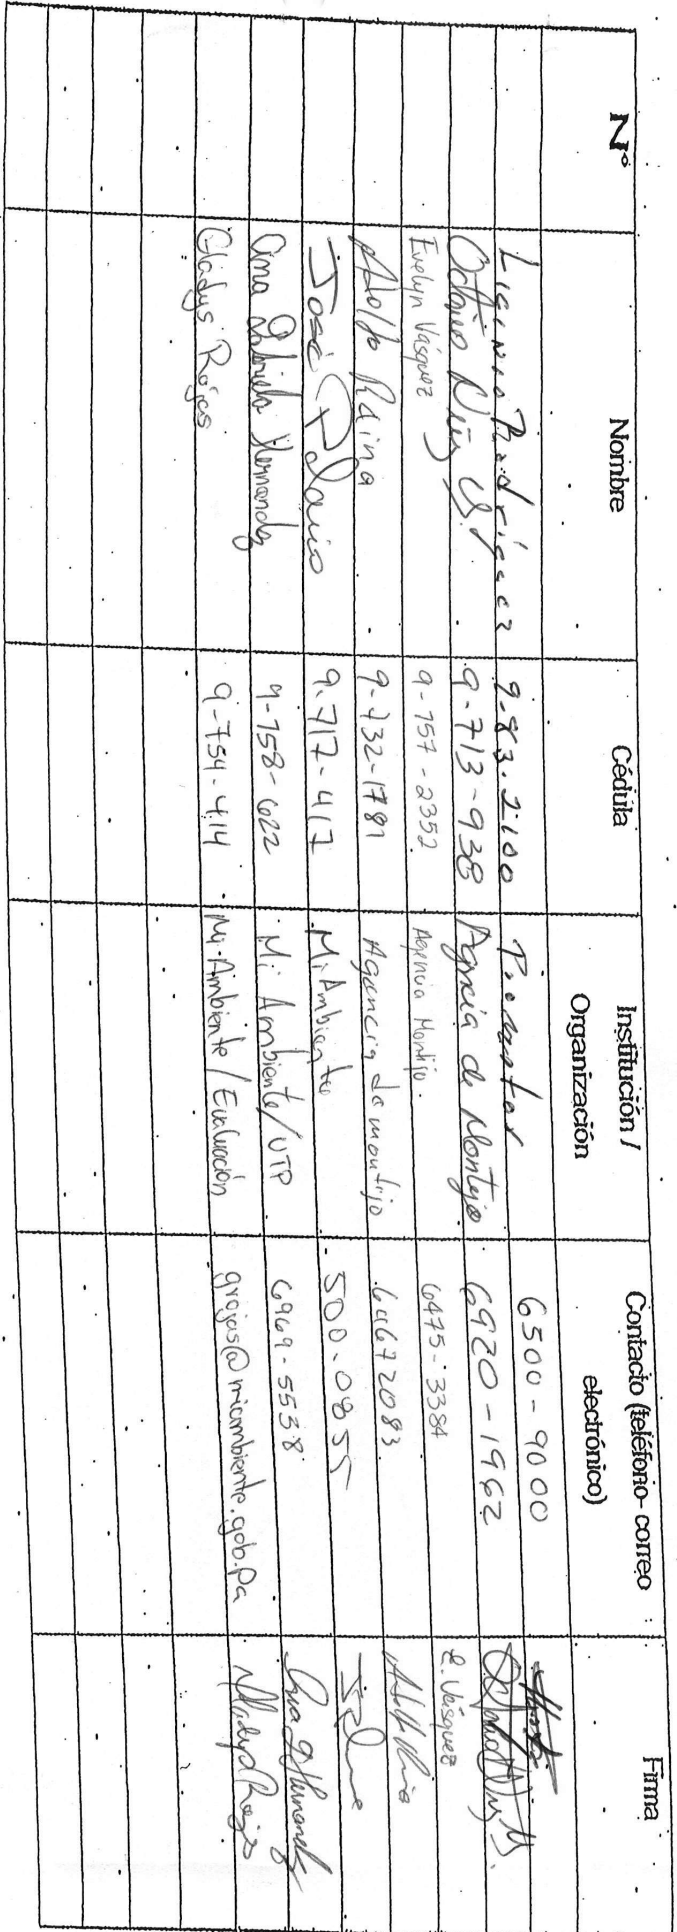 N° Nombre Cédula Institución / Organización Contacto (teléfono- correo electrónico) Firma
Licinio Rodríguez 9.83.2100 Promotor 6500-9000
Octavio 9.713-938 Agencia de Montijo 6920-1962
Evelyn Vásquez 9-757-2352 Agencia Montijo. 6475-3384 E. Vásquez
Adolfo Reina 9-732-1781 Agencia de montijo 66672083
José 9.717-417 MiAmbiente 500-0855
Ana Gabriela Hernandez 9-758-622 Mi Ambiente/UTP 6969-5538 Ana G Hernandez
Gladys Rojas 9-754-414 Mi-Ambiente/Evaluación grojas@miambiente.gob.pa Gladys Rojas